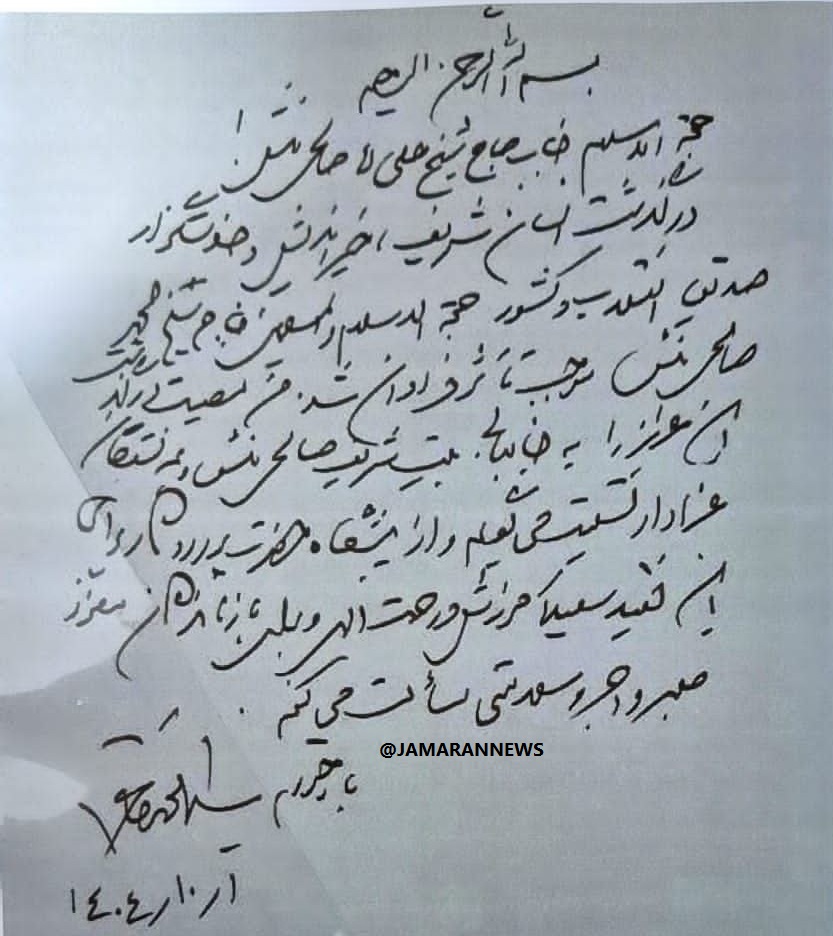 بسم الله الرحمن الرحیم
حجة الاسلام جناب حاج شیخ علی آقا صالحی منش!
درگذشت انسان شریف، خیراندیش و خدمتگزار
صدیق انقلاب و کشور حجة الاسلام والمسلمین حاج شیخ محمد
صالحی منش موجب تأثر فراوان شد. من مصیبت درگذشت
آن عزیز را به جنابعالی، بیت شریف صالحی منش و همه بستگان
عزادار تسلیت می گویم و از پیشگاه حضرت پروردگار برای
آن فقید سعید آمرزش و رحمت الهی و برای بازماندگان معزز
صبر و اجر و سلامتی مسألت می کنم.
@JAMARANNEWS
با احترام سید محمد خاتمی
۱۴۰۴/۱۰/۱